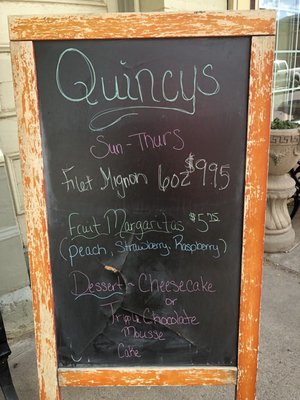 Quincys
Sun-Thurs
Filet Mignon 6oz $9.95
Fruit Margaritas $5.75
(Peach, Strawberry, Raspberry)
Dessert - Cheesecake
or
Triple Chocolate
Mousse
Cake